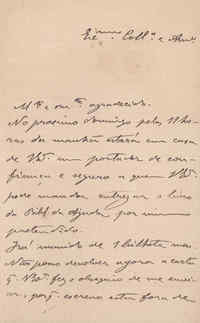 Ex.mo Coll.a e Am.o
M.to e m.to agradecido.
No proximo domingo pelas 11 ho-
ras da manhã estará em casa
de V.a um portador de con-
fiança e seguro a quem V.a
pode mandar entregar o livro
da Bibl. da Ajuda por mim
pretendido.
Irá munido de 1 bilhete meu.
Não posso devolver agora a carta
q. V.a fez o obsequio de me envi-
ar, porq. escrevo estou fora de